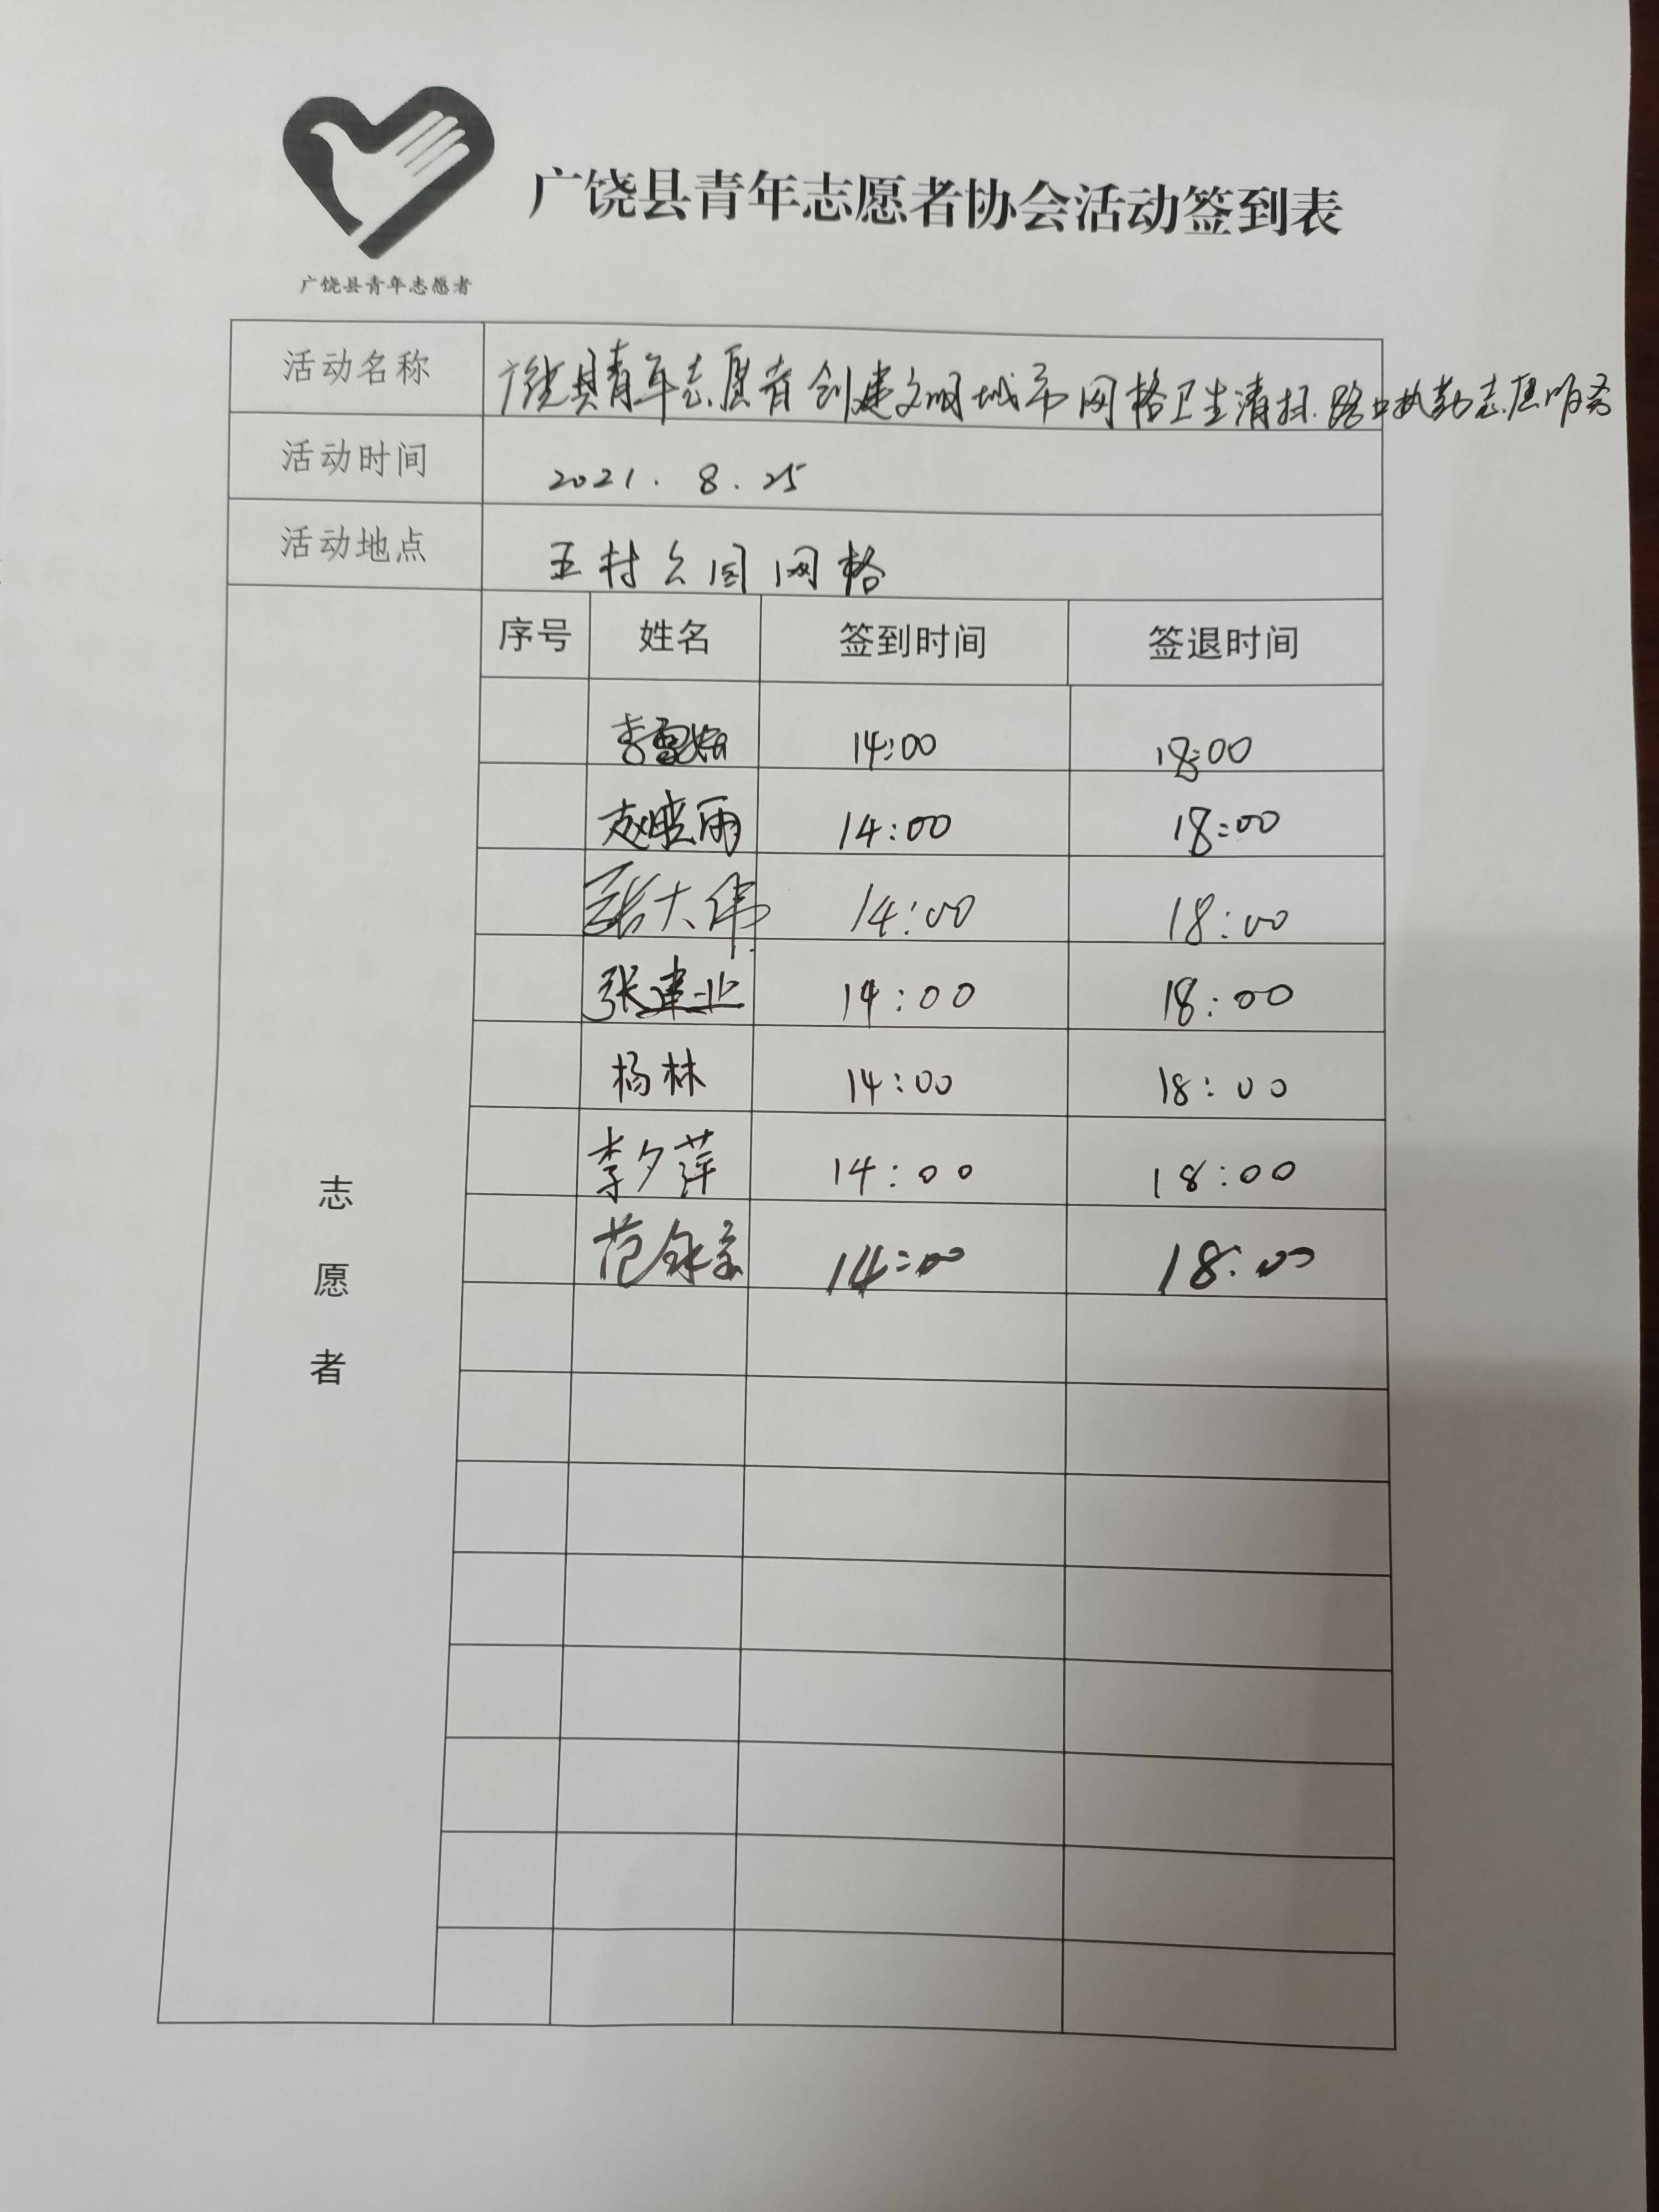 广饶县青年志愿者协会活动签到表
广饶县青年志愿者
活动名称 广饶县青年志愿者创建文明城市网格卫生清扫.路口执勤志愿服务
活动时间 2021.8.25
活动地点 王村公园网格
序号 姓名 签到时间 签退时间
李雪 14:00 18:00
赵晓雨 14:00 18:00
张大伟 14:00 18:00
张建业 14:00 18:00
杨林 14:00 18:00
李夕萍 14:00 18:00
范 14:00 18:00
志
愿
者